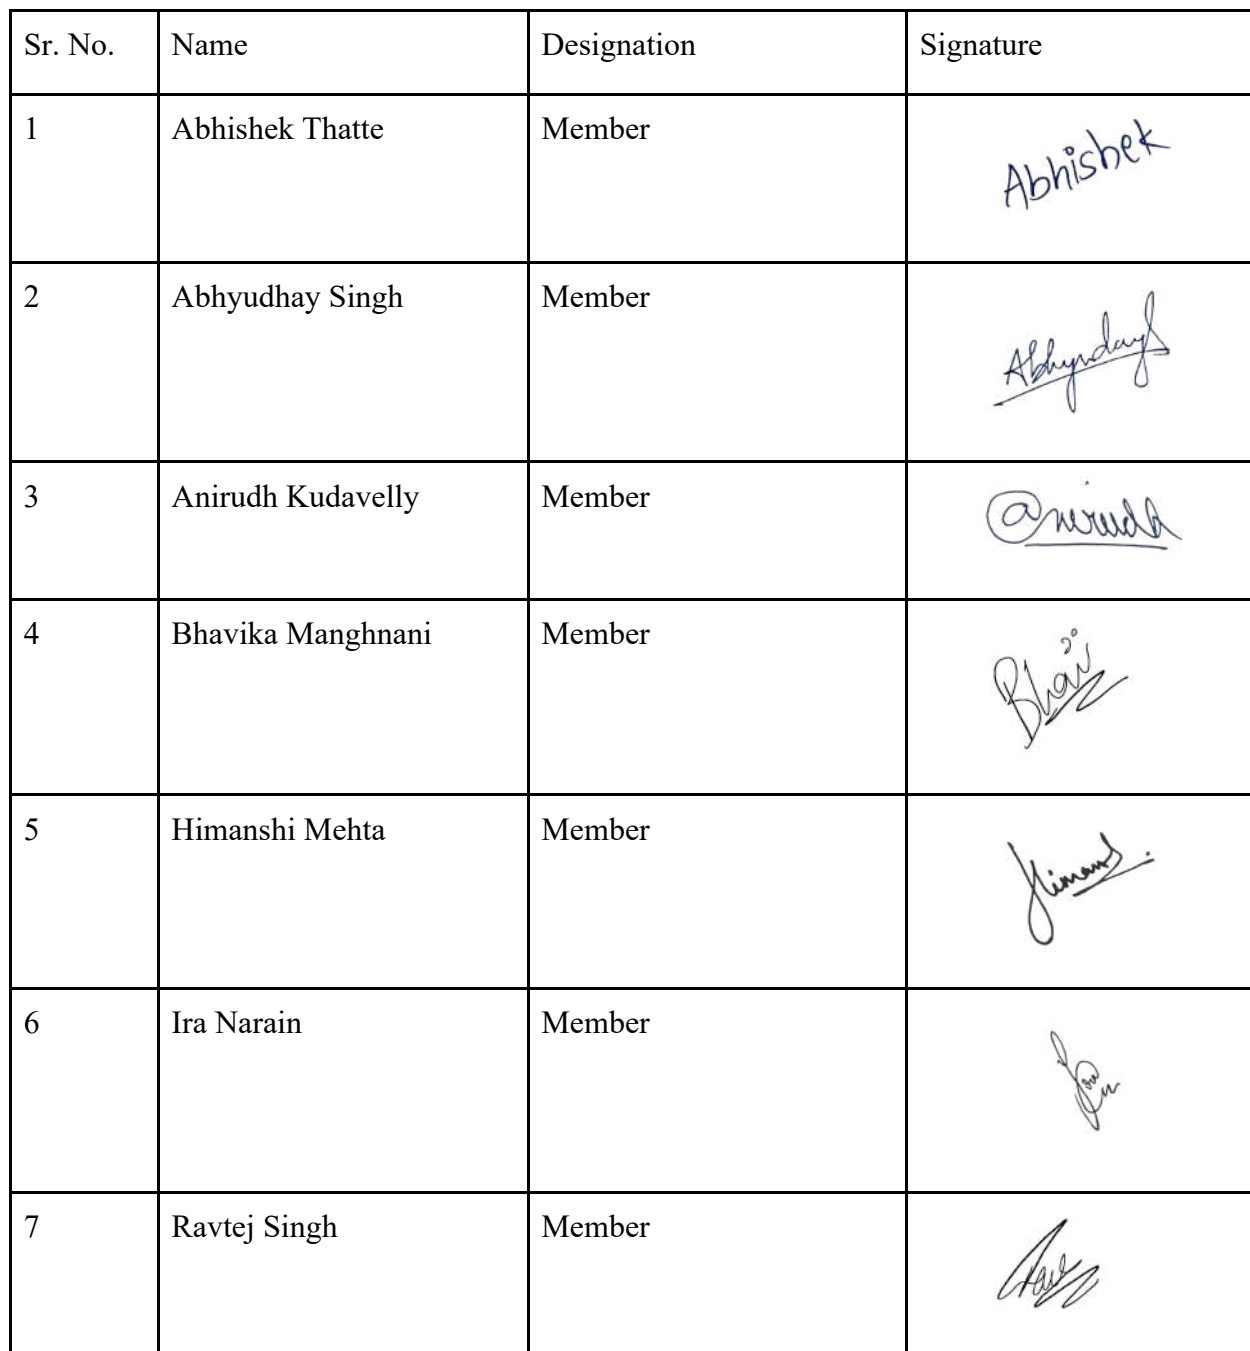 Sr. No. Name Designation Signature
1 Abhishek Thatte Member Abhishek
2 Abhyudhay Singh Member AbhyudayS
3 Anirudh Kudavelly Member Anirudh
4 Bhavika Manghnani Member Bhavi
5 Himanshi Mehta Member
6 Ira Narain Member
7 Ravtej Singh Member